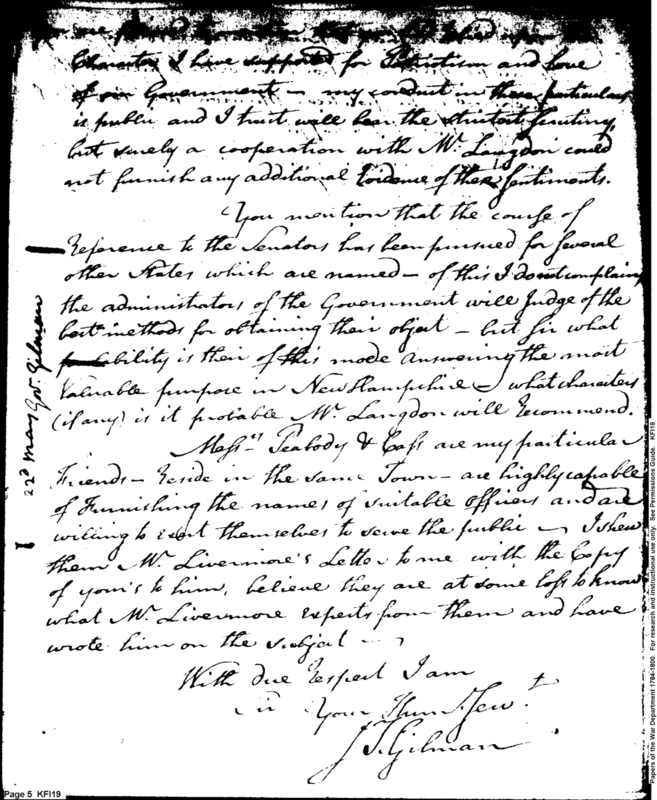 Character I have supported for Patriotism and Love
of our Government – my conduct in these particulars
is public and I trust will bear the strictest scrutiny,
but surely a cooperation with Mr. Langdon could
not furnish any additional Evidence of these Sentiments.
You mention that the course of
Reference to the Senators has been pursued for several
other States which are named – of this I do not complain
the administrators of the Government will Judge of the
best methods for obtaining their object – but Sir what
bability is their of this mode answering the most
Valuable purpose in New Hampshire – what characters
(if any) is it probable Mr. Langdon will Recommend.
Messrs Peabody & Cass are my particular
Friends – Reside in the same Town – are highly capable
of Furnishing the names of suitable officers and are
willing to exert themselves to serve the public – I shew
them Mr. Livermore's Letter to me with the Copy
of your's to him, believe they are at some loss to know
what Mr. Livermore expects from them and have
wrote him on the subject –
With due Respect I am
Sir Your Hum. Servt
J T Gilman
22d May Gov. Gilman
Page 5 KFI19
Papers of the War Department 1784-1800. For research and instructional use only. See Permissions Guide. KFI19